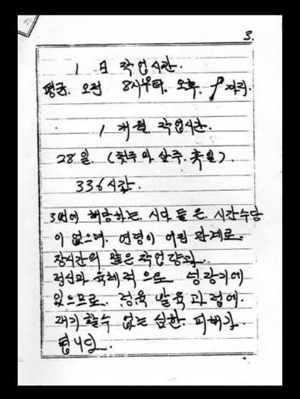 3.
1日 작업시간.
평균. 오전 8시부터. 오후.
1개월 작업시간.
28일. (첫주와 삼주, 휴일).
336시간.
3번에 해당하는 시다들은 시간수당
이 없으며. 연령이 어린 관계로.
장시간의 많은 작업량과.
정신과 육체적으로 성장기에
있으므로. 정육 발육과 정에.
대기 할수 없는 심한. 피해가
됩니다.